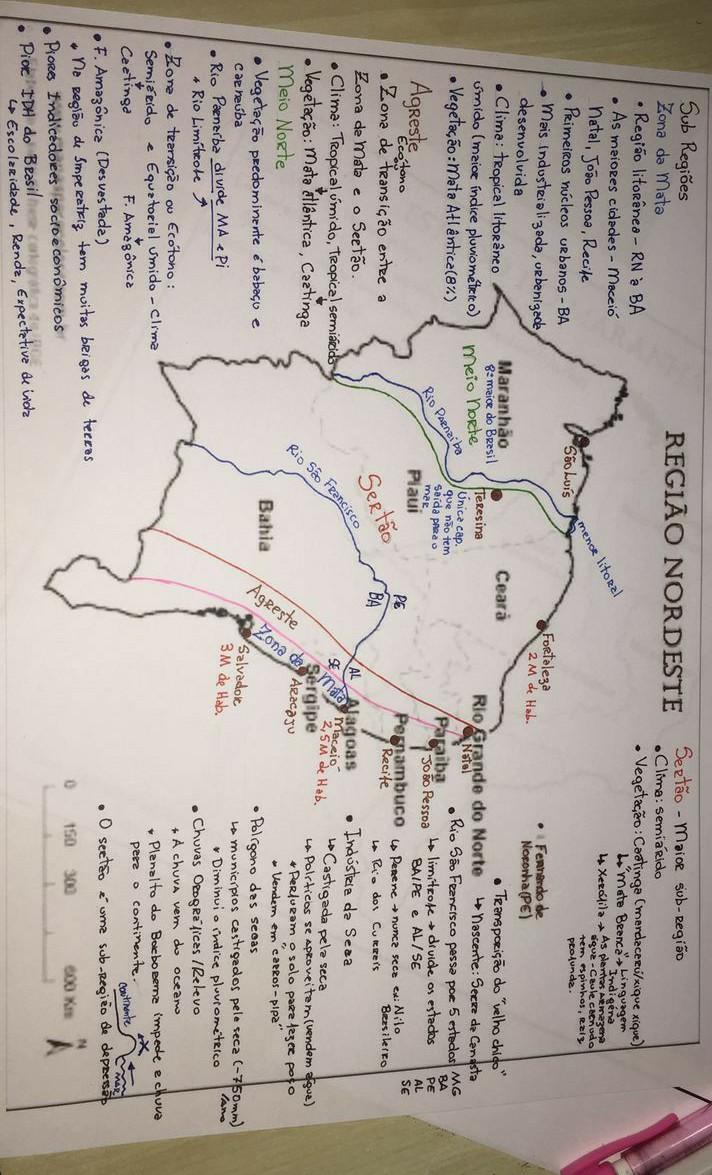 REGIÃO NORDESTE
Sub Regiões
Zona da Mata
• Região litorânea - RN à BA
• As maiores cidades - Maceió
Natal, João Pessoa, Recife
• Primeiros núcleos urbanos - BA
→ Mais industrializada, urbanizada
desenvolvida
• Clima: tropical litorâneo
úmido (maior índice pluviométrico)
• Vegetação: Mata Atlântica (8%)
Agreste
Ecótono
• Zona de transição entre a
Zona da Mata e o Sertão.
• Clima: Tropical úmido, Tropical semiárido
• Vegetação: Mata Atlântica, Caatinga
Meio Norte
• Vegetação predominante é babaçu e
carnaúba
• Rio Parnaíba divide MA e Pi
+ Rio Limítrofe
• Zona de transição ou Ecótono:
Semiárido e Equatorial úmido - Clima
Caatinga F. Amazônica
• F. Amazônica (Desvastada)
+ Na região de Imperatriz, tem muitas brigas de terras
• Piores Indicadores socioeconômicos
• Pior IDH do Brasil
↳ Escolaridade, Renda, Expectativa de vida
Maranhão
8º maior do Brasil
Meio Norte
São Luís
menor litoral
Rio Parnaíba
Teresina
Única cap.
que não tem
saída para o
mar
Piauí
Ceará
Fortaleza
2 M de Hab.
Sertão
Rio São Francisco
Bahia
PE
BA
Agreste
Zona da Mata
AL
SE
Rio Grande do Norte
Natal
Paraíba
João Pessoa
Pernambuco
Recife
Alagoas
Maceió
2,5 M de Hab.
Sergipe
Aracaju
Salvador
3 M de Hab.
• Fernando de
Noronha (PE)
0 150 300 600 Km
N
Sertão - Maior sub-região
• Clima: semiárido
• Vegetação: Caatinga (mandacaru/xique xique)
↳ "Mata Branca" → Linguagem
Indígena
↳ Xerófila → As plantas armazena
água - Caule carnudo
tem espinhos, raiz
profunda.
• Transposição do "velho chico"
↳ Nascente: Serra da Canasta
• Rio São Francisco passa por 5 estados MG
BA
PE
AL
SE
↳ limítrofe → divide os estados
BA/PE e AL/SE
↳ Perene → nunca seca ex: Nilo
Brasileiro
↳ Rio dos Currais
• Indústria da Seca
↳ Castigada pela seca
↳ Políticos se aproveitam (vendem água)
+ Perfuram o solo para fazer poço
+ Vendem em "carros-pipa"
• Polígono das secas
↳ municípios castigados pela seca (-750mm)
/ano
+ Diminui o índice pluviométrico
• Chuvas Orográficas/Relevo
+ A chuva vem do oceano
+ Planalto do Borborema impede a chuva
para o continente.
continente
mar
• O sertão é uma sub-região de depressão